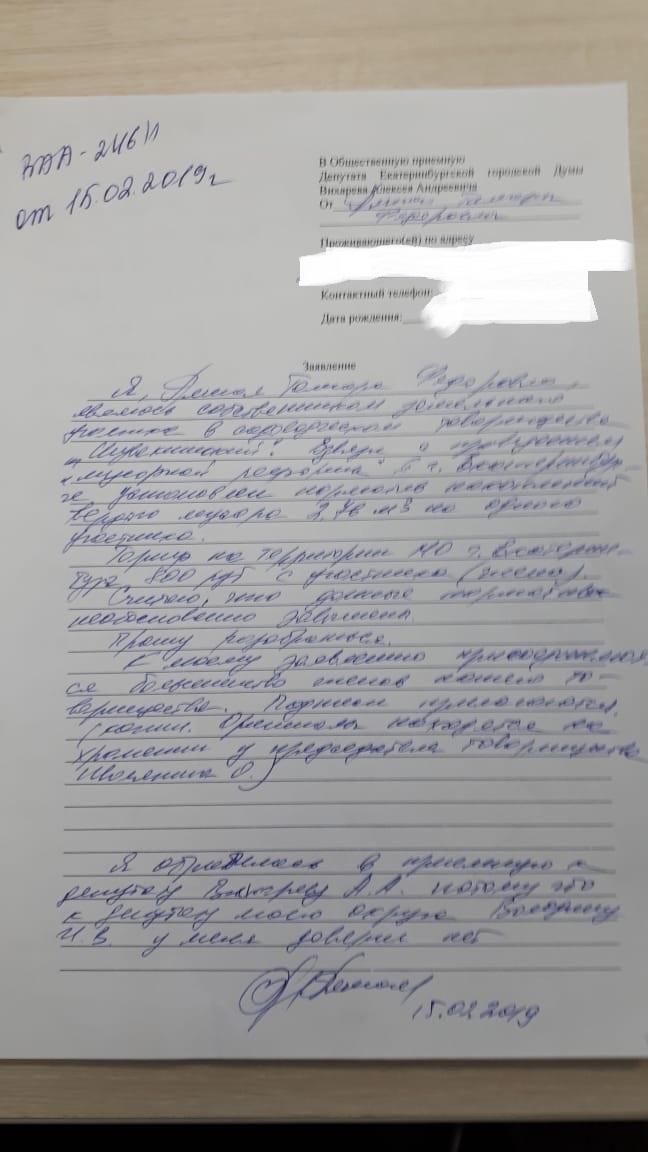 ВАА-246/1
от 15.02.2019г
В Общественную приемную
Депутата Екатеринбургской городской Думы
Вихарева Алексея Андреевича
От Тамары
Федоровны
Проживающего(ей) по адресу
Контактный телефон:
Дата рождения:
Заявление
Я, Тамара Федоровна,
являюсь собственником земельного
участка в садоводческом товариществе
"Шувакишский". В связи с проведением
"мусорной реформы" в г. Екатеринбур-
ге установлен норматив накопления
твердого мусора 2,78 м³ на одного
участника.
Тариф на территории МО г. Екатерин-
бурга 800 руб с участника (члена).
Считаю, что данные нормативы
необоснованно завышены.
Прошу разобраться.
К моему заявлению присоединяют-
ся большинство членов нашего то-
варищества. Подписи прилагаются.
(копии. Оригиналы находятся на
хранении у председателя товарищества
О.)
Я обратилась в приемную к
депутату Вихареву А.А. потому что
к депутату моего округа Володину
И.В. у меня доверия нет
15.02.2019